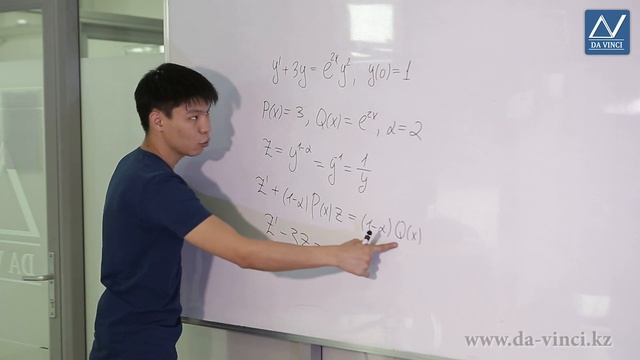 DA VINCI
y' + 3y = e^{2x} y^2, y(0) = 1
P(x) = 3, Q(x) = e^{2x}, α = 2
Z = y^{1-α} = y^{-1} = 1/y
Z' + (1-α) P(x) z = (1-α) Q(x)
Z' - 3Z =
DA V
www.da-vinci.kz